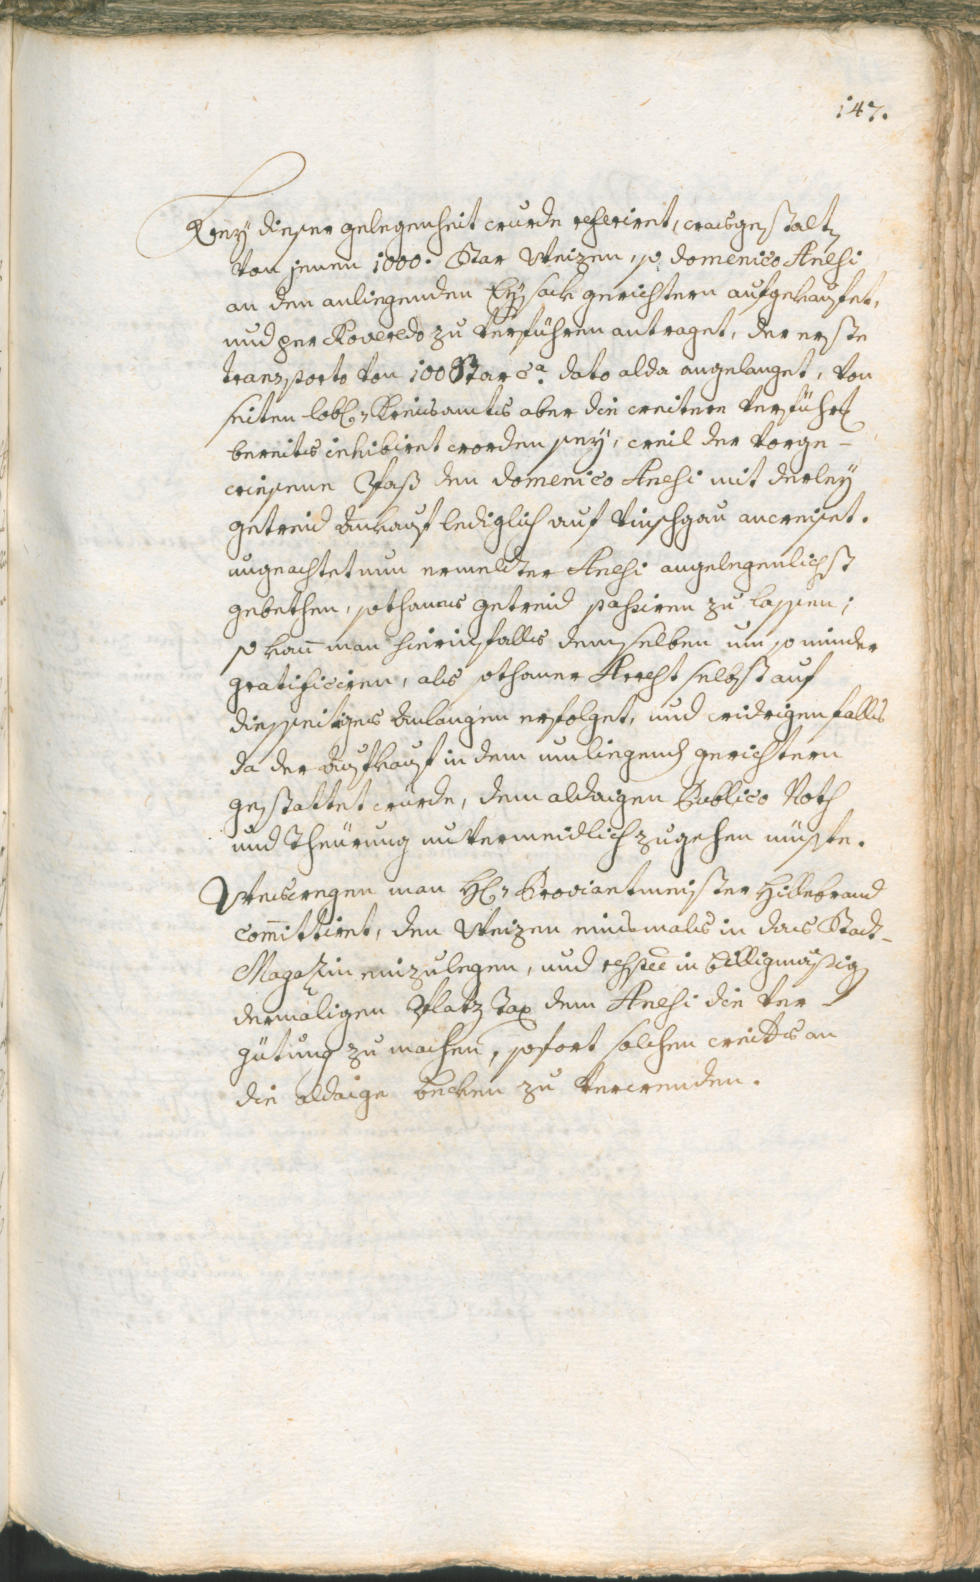 147.
Bey dieser gelegenheit wurde referiret, wasgestalt
von jenen 1000. Star Weizen, so domenico Anesi
an den anliegenden Eysack gerichtern aufgekaufet,
und per Roveredo zu verführen antraget, der erste
transporto von 100 Star sa. dato alda angelanget, von
seiten lobl. Kreisamts aber die weitere verführ
bereits inhibiret worden sey, weil der vorge-
wiesene Paß den domenico Anesi mit derley
getreid Ankauf lediglich auf Vinschgau anweiset.
ungeachtet nun ermelter Anesi angelegenlichst
gebethen, sothanes getreid passiren zu lassen;
so kan man hierinfalls demselben um so minder
gratificiren, als sothaner Arrest selbst auf
diesseitiges Anlangen erfolget, und widrigenfalls
da der Aufkauf in dem umliegend gerichtern
gestattet würde, dem aldaigen Publico Noth
und Theürung unvermeidlich zugehen müste.
Weswegen man H. Proviantmeister Hillebrand
committiret, den Weizen einsmals in das Stadt-
Magazin einzulegen, und in billigmässig
dermaligen Platz Tax dem Anesi die Ver-
gütung zu machen, sofort solchen weiters an
die aldaige becken zu verwenden.